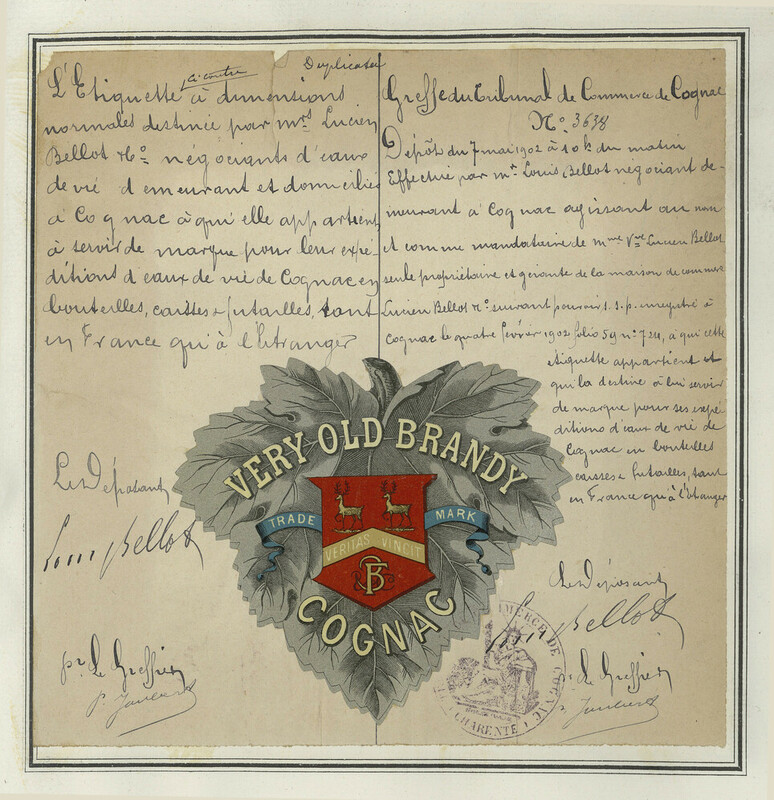 Duplicata
ci-contre
L'Etiquette à dimensions
normales destinée par Mrs Lucien
Bellot & Co négociants d'eaux
de vie demeurant et domiciliés
à Cognac à qui elle appartient,
à servir de marque pour leur expé-
ditions d'eaux de vie de Cognac en
bouteilles, caisses & futailles, tant
en France qu'à l'Etranger
Le Déposant
Louis Bellot
pr Le Greffier
Greffe du Tribunal de Commerce de Cognac
No 3638
Dépôt du 7 mai 1902 à 10 h. du matin
Effectué par Mr Louis Bellot négociant de-
meurant à Cognac agissant au nom
et comme mandataire de Mme Vve Lucien Bellot
seule propriétaire et gérante de la maison de commerce
Lucien Bellot & Co suivant pouvoir s.s.p. enregistré à
Cognac le quatre février 1902 folio 59 no 724, à qui cette
étiquette appartient et
qui la destine à lui servir
de marque pour ses expé-
ditions d'eaux de vie de
Cognac en bouteilles
caisses & futailles, tant
en France qu'à l'étranger
Le Déposant
Louis Bellot
pr Le Greffier
VERY OLD BRANDY
TRADE MARK
VERITAS VINCIT
B & C
COGNAC
COMMERCE DE COGNAC
CHARENTE